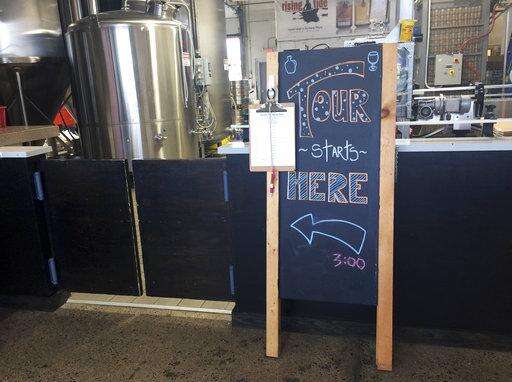 rising tide
TOUR
~ STARTS ~
HERE
3:00